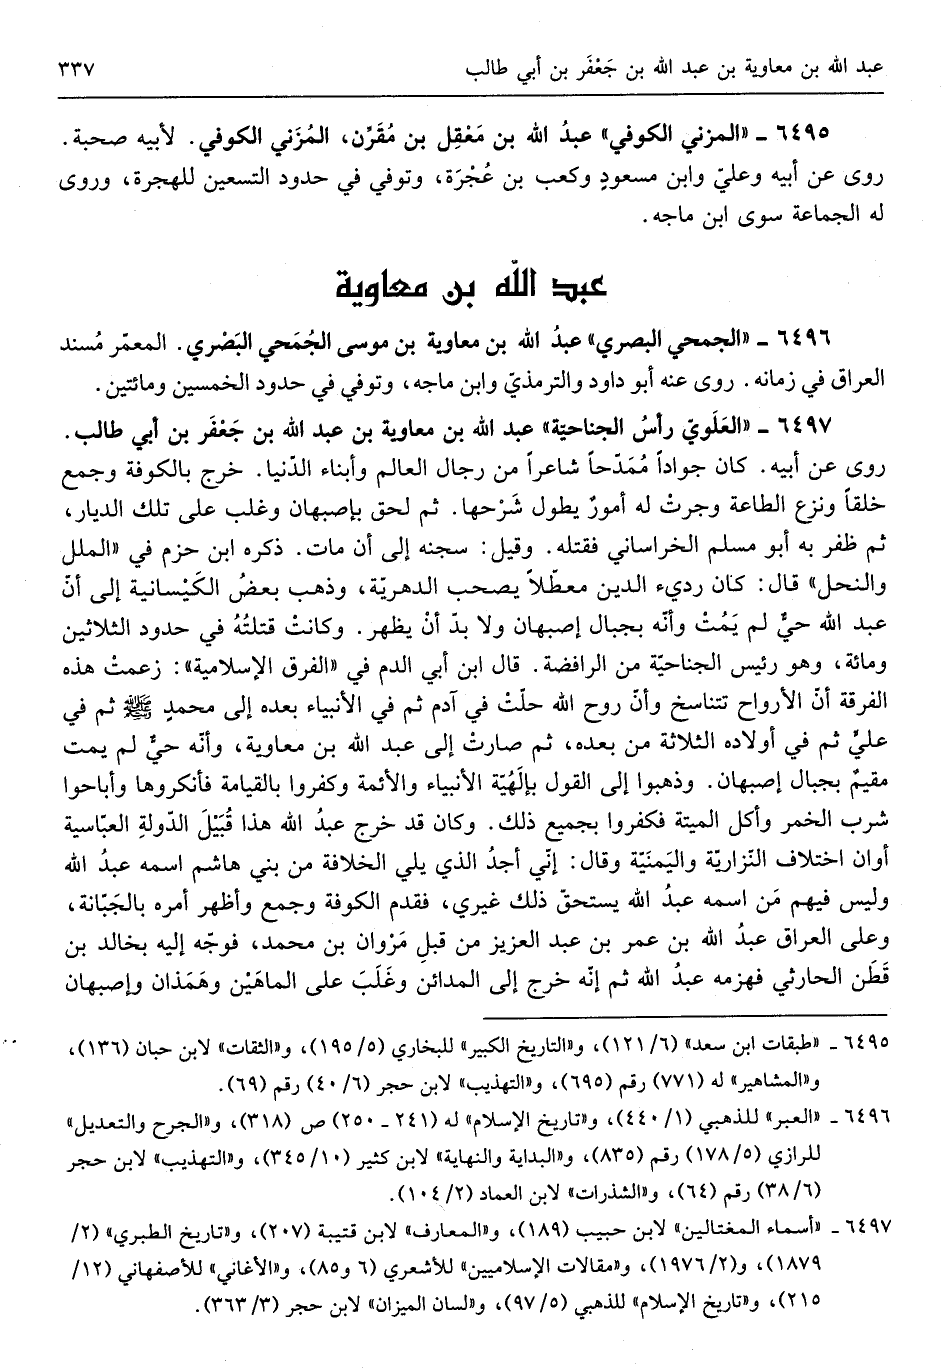 عبد الله بن معاوية بن عبد الله بن جَعْفَر بن أبي طالب ٣٣٧
٦٤٩٥ ـ «المزني الكوفي» عبدُ الله بن مَعْقِل بن مُقَرِّن، المُزَني الكوفي. لأبيه صحبة.
روى عن أبيه وعليّ وابن مسعودٍ وكعب بن عُجْرَة، وتوفي في حدود التسعين للهجرة، وروى
له الجماعة سوى ابن ماجه.
عبد اللّه بن معاوية
٦٤٩٦ ـ «الجمحي البصري» عبدُ الله بن معاوية بن موسى الجُمَحي البَصْري. المعمّر مُسند
العراق في زمانه. روى عنه أبو داود والترمذيّ وابن ماجه، وتوفي في حدود الخمسين ومائتين.
٦٤٩٧ ـ «العَلَويّ رأسُ الجناحيّة» عبد الله بن معاوية بن عبد الله بن جَعْفَر بن أبي طالب.
روى عن أبيه. كان جواداً مُمَدّحاً شاعراً من رجال العالم وأبناء الدّنيا. خرج بالكوفة وجمع
خلقاً ونزع الطاعة وجرتْ له أمورٌ يطول شَرْحها. ثم لحق بإصبهان وغلب على تلك الديار،
ثم ظفر به أبو مسلم الخراساني فقتله. وقيل: سجنه إلى أن مات. ذكره ابن حزم في «الملل
والنحل» قال: كان رديء الدين معطّلاً يصحب الدهريّة، وذهب بعضُ الكَيْسانية إلى أنّ
عبد الله حيٌّ لم يَمُتْ وأنّه بجبال إصبهان ولا بدّ أنْ يظهر. وكانتْ قتلتُهُ في حدود الثلاثين
ومائة، وهو رئيس الجناحيّة من الرافضة. قال ابن أبي الدم في «الفرق الإسلامية»: زعمتْ هذه
الفرقة أنّ الأرواح تتناسخ وأنّ روح الله حلّتْ في آدم ثم في الأنبياء بعده إلى محمدٍ ﷺ ثم في
عليٍّ ثم في أولاده الثلاثة من بعده، ثم صارتْ إلى عبد الله بن معاوية، وأنّه حيٌّ لم يمت
مقيمٌ بجبال إصبهان. وذهبوا إلى القول بإلَهُيّة الأنبياء والأئمة وكفروا بالقيامة فأنكروها وأباحوا
شرب الخمر وأكل الميتة فكفروا بجميع ذلك. وكان قد خرج عبدُ الله هذا قُبَيْلَ الدّولةِ العبّاسية
أوان اختلاف النّزاريّة واليَمَنيّة وقال: إنّي أجدُ الذي يلي الخلافة من بني هاشم اسمه عبدُ الله
وليس فيهم مَن اسمه عبدُ الله يستحقّ ذلك غيري، فقدم الكوفة وجمع وأظهر أمره بالجَبّانة،
وعلى العراق عبدُ الله بن عمر بن عبد العزيز من قبلِ مَرْوان بن محمد، فوجّه إليه بخالد بن
قَطَن الحارثي فهزمه عبدُ الله ثم إنّه خرج إلى المدائن وغَلَبَ على الماهَيْن وهَمَذان وإصبهان
٦٤٩٥ ـ «طبقات ابن سعد» (٦/ ١٢١)، و«التاريخ الكبير» للبخاري (٥/ ١٩٥)، و«الثقات» لابن حبان (١٣٦)،
و«المشاهير» له (٧٧١) رقم (٦٩٥)، و«التهذيب» لابن حجر (٦/ ٤٠) رقم (٦٩).
٦٤٩٦ ـ «العبر» للذهبي (١/ ٤٤٠)، و«تاريخ الإسلام» له (٢٤١ ـ ٢٥٠) ص (٣١٨)، و«الجرح والتعديل»
للرازي (٥/ ١٧٨) رقم (٨٣٥)، و«البداية والنهاية» لابن كثير (١٠/ ٣٤٥)، و«التهذيب» لابن حجر
(٦/ ٣٨) رقم (٦٤)، و«الشذرات» لابن العماد (٢/ ١٠٤).
٦٤٩٧ ـ «أسماء المغتالين» لابن حبيب (١٨٩)، و«المعارف» لابن قتيبة (٢٠٧)، و«تاريخ الطبري» (٢/
١٨٧٩)، و(٢/ ١٩٧٦)، و«مقالات الإسلاميين» للأشعري (٦ و٨٥)، و«الأغاني» للأصفهاني (١٢/
٢١٥)، و«تاريخ الإسلام» للذهبي (٥/ ٩٧)، و«لسان الميزان» لابن حجر (٣/ ٣٦٣).